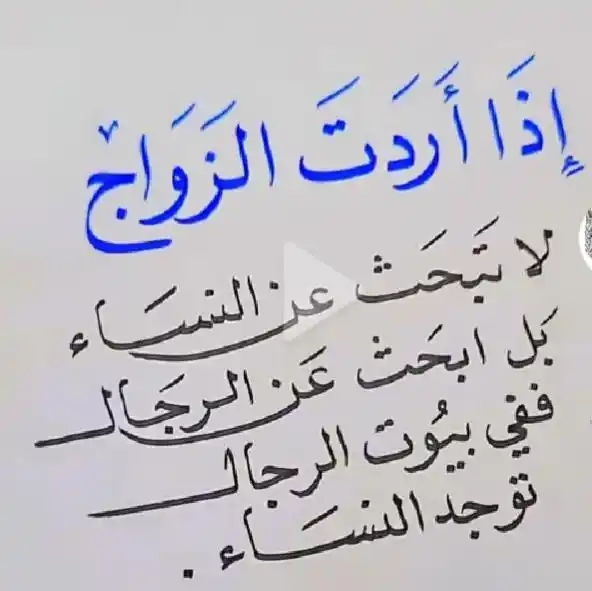 إِذَا أَرَدَتَ الزَوَاج
لا تَبحَث عن النسَاء
بَل ابحَث عَن الرجَال
ففي بيُوت الرجال
توجد النسَاء .